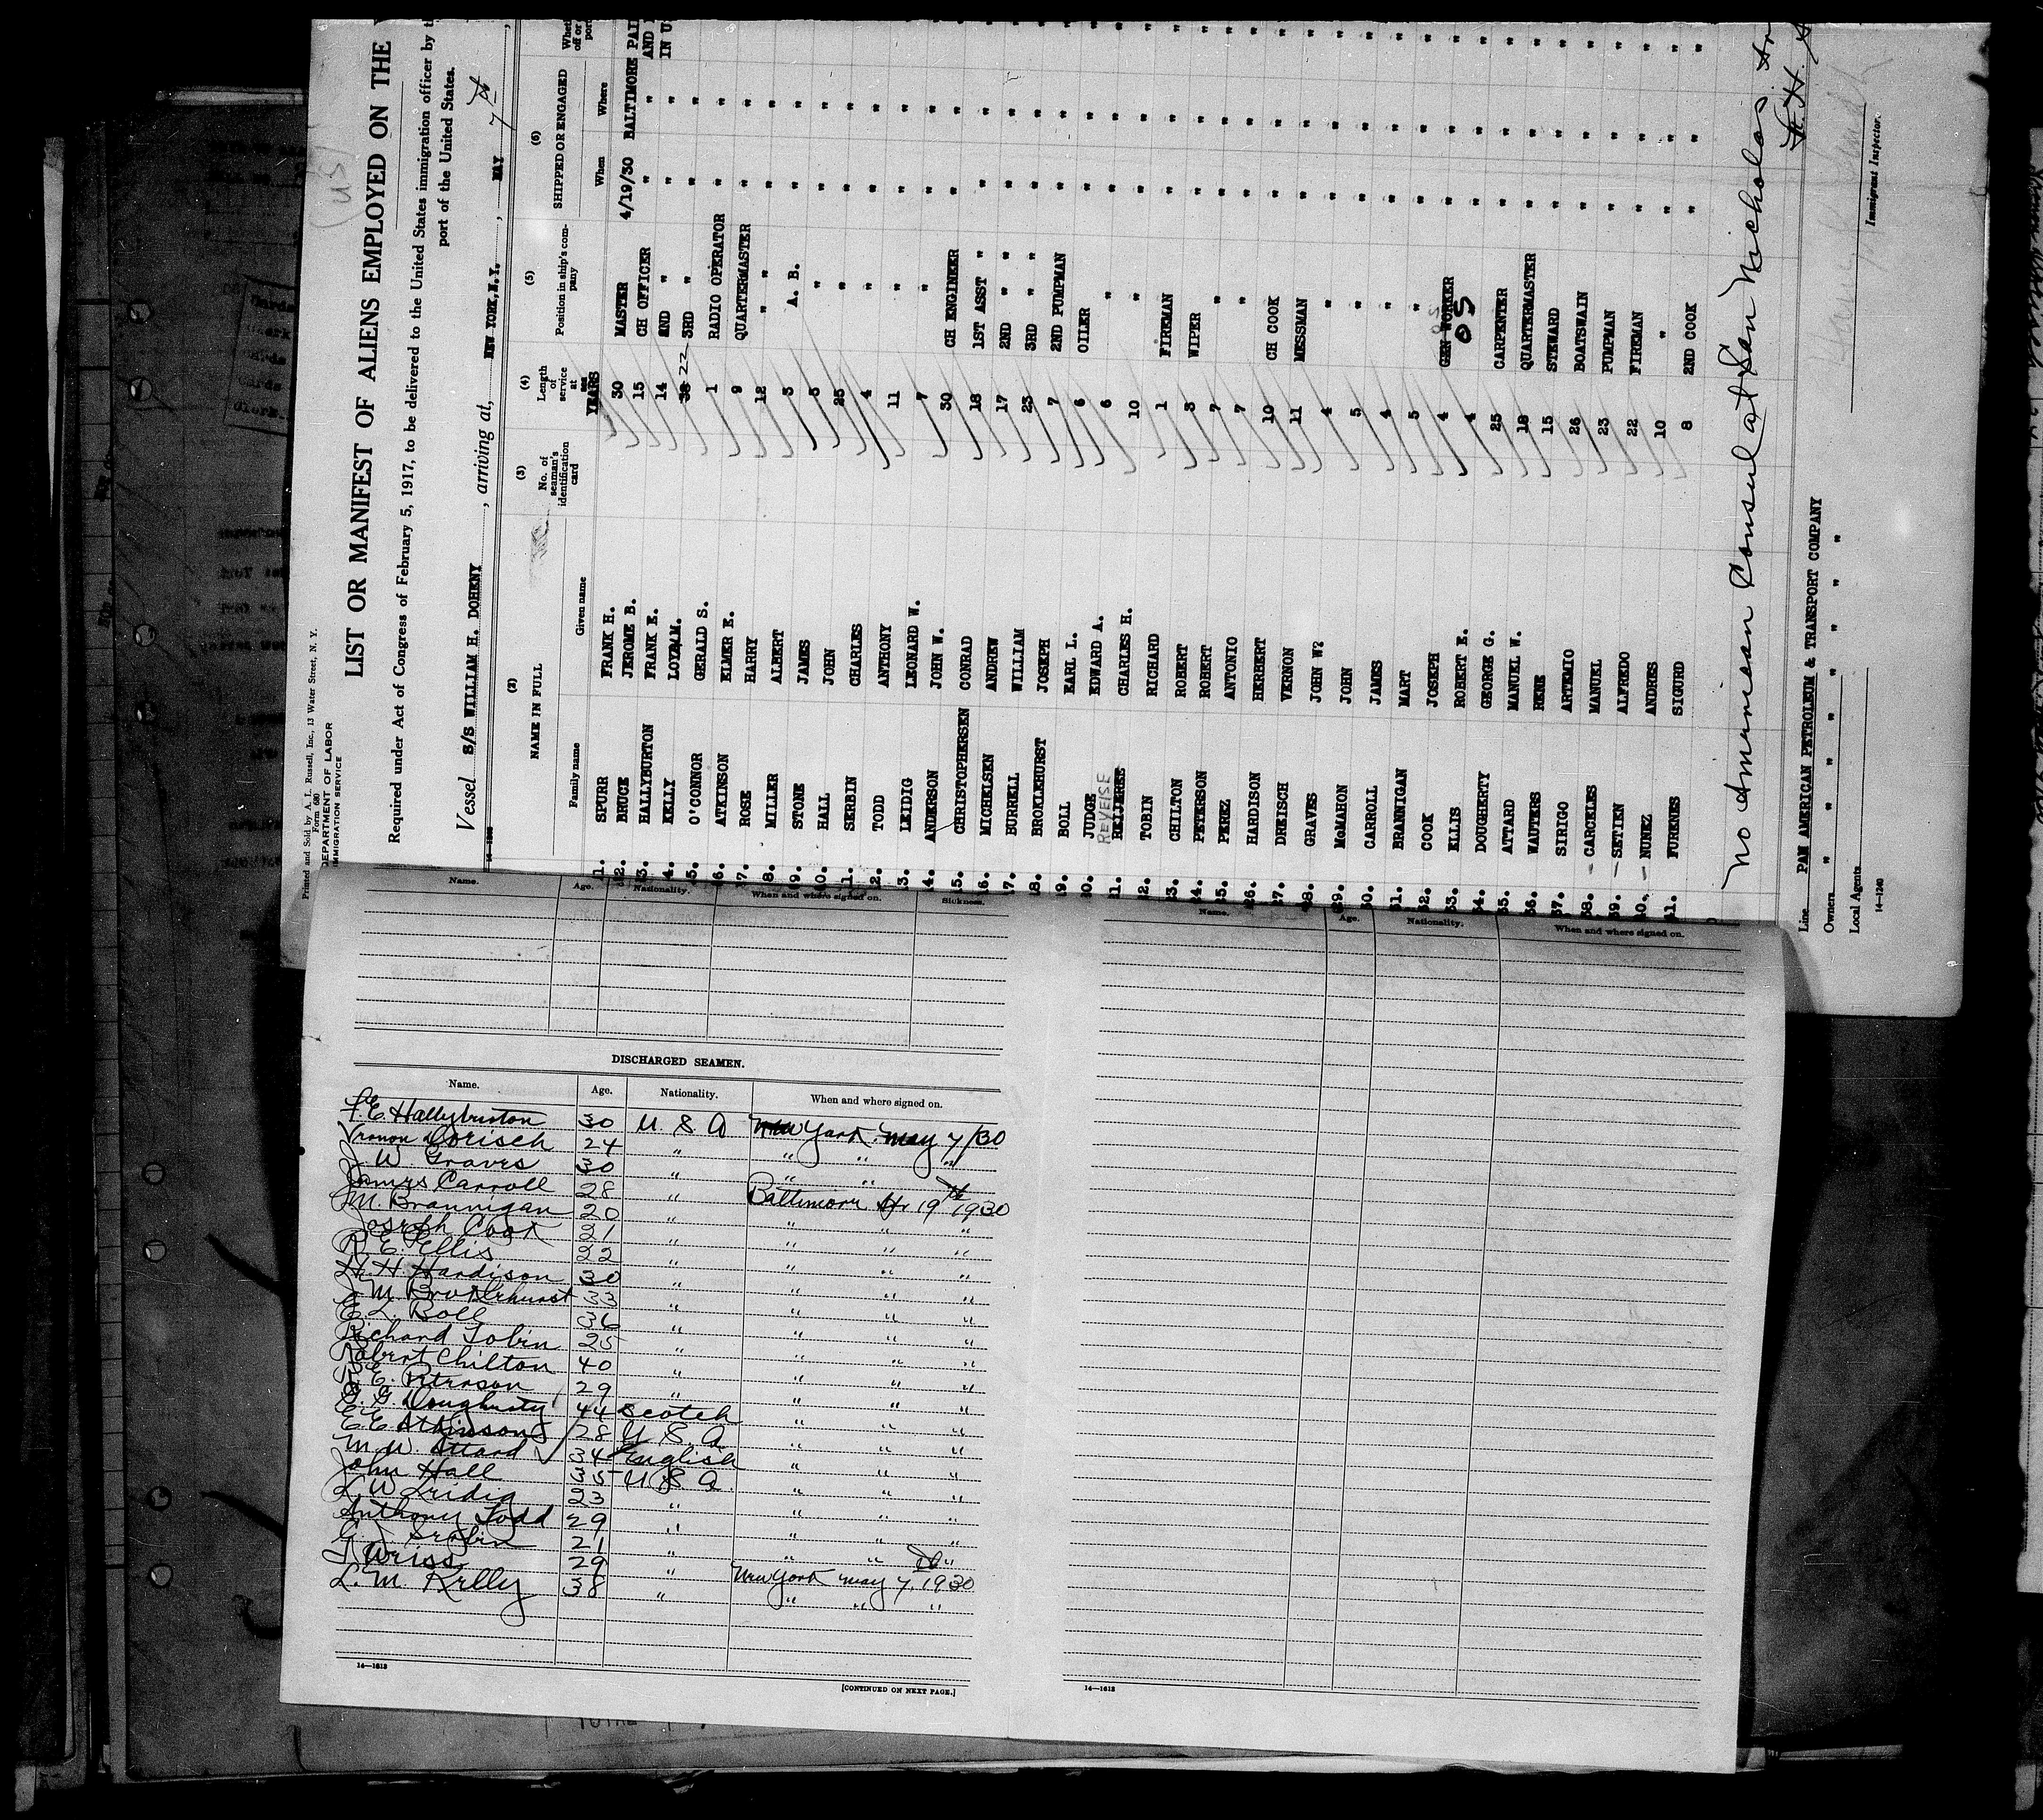 Printed and Sold by A. L. Russell, Inc., 13 Water Street, N. Y.
Form 680
DEPARTMENT OF LABOR
IMMIGRATION SERVICE
(US)
LIST OR MANIFEST OF ALIENS EMPLOYED ON THE
Required under Act of Congress of February 5, 1917, to be delivered to the United States immigration officer by
port of the United States.
Vessel S/S WILLIAM H. DOHENY, arriving at, NEW YORK, N.Y., MAY 7th,
(2) (3) (4) (5) (6)
NAME IN FULL No. of seaman's identification card Length of service at sea YEARS Position in ship's company SHIPPED OR ENGAGED
Family name Given name When Where
1. SPURR FRANK H. 30 MASTER 4/19/30 BALTIMORE
2. BRUCE JEROME B. 15 CH OFFICER " " "
3. HALLYBURTON FRANK E. 14 2ND " " " "
4. KELLY LOYZ M. 38 22 3RD " " " "
5. O'CONNOR GERALD S. 1 RADIO OPERATOR " " "
6. ATKINSON ELMER E. 9 QUARTERMASTER " " "
7. ROSE HARRY 12 " " " " "
8. MILLER ALBERT 3 A. B. " " "
9. STONE JAMES 5 " " " "
10. HALL JOHN 25 " " " "
11. SERBIN CHARLES 4 " " " "
12. TODD ANTHONY 11 " " " "
13. LEIDIG LEONARD W. 7 " " " "
14. ANDERSON JOHN W. 30 CH ENGINEER " " "
15. CHRISTOPHERSEN CONRAD 18 1ST ASST " " " "
16. MICHELSEN ANDREW 17 2ND " " " " "
17. BURRELL WILLIAM 23 3RD " " " " "
18. BROKLEHURST JOSEPH 7 2ND PUMPMAN " " "
19. BOLL EARL L. 6 OILER " " "
20. JUDGE EDWARD A. 6 " " " "
REVEISE
21. CHARLES H. 10 " " " "
22. TOBIN RICHARD 1 FIREMAN " " "
23. CHILTON ROBERT 3 WIPER " " "
24. PETERSON ROBERT 7 " " " "
25. PEREZ ANTONIO 7 " " " "
26. HARDISON HERBERT 10 CH COOK " " "
27. DREISCH VERNON 11 MESSMAN " " "
28. GRAVES JOHN W? 4 " " " "
29. McMAHON JOHN 5 " " " "
30. CARROLL JAMES 4 " " " "
31. BRANNIGAN MART 5 " " " "
32. COOK JOSEPH 4 GEN WORKER OS " " "
33. ELLIS ROBERT E. 4 OS " " "
34. DOUGHERTY GEORGE G. 25 CARPENTER " " "
35. ATTARD MANUEL W. 18 QUARTERMASTER " " "
36. WAUTERS RENE 15 STEWARD " " "
37. SIRIGO ARTEMIO 26 BOATSWAIN " " "
38. CARCELES MANUEL 23 PUMPMAN " " "
39. SETIEN ALFREDO 22 FIREMAN " " "
40. NUNEZ ANDRES 10 " " " "
41. FURENES SIGURD 8 2ND COOK " " "
No American Consul at San Nicholas
Immigrant Inspector.
Line PAN AMERICAN PETROLEUM & TRANSPORT COMPANY
Owners " " " " " "
Local Agents
14—1240
Name. Age. Nationality. When and where signed on. Sickness.
DISCHARGED SEAMEN.
Name. Age. Nationality. When and where signed on.
F. E. Hallyburton 30 U S A New York May 7/30
Vernon Dorisch 24 " " " "
J W Graves 30 " " "
James Carroll 28 " Baltimore Apr 19th 1930
M. Brannigan 20 " " " "
Joseph Cook 21 " " " "
R. E. Ellis 22 " " " "
H. H. Hardison 30 " " " "
J M Broklehurst 33 " " " "
E. L. Boll 36 " " " "
Richard Tobin 25 " " " "
Robert Chilton 40 " " " "
R. E. Peterson 29 " " " "
G. G. Dougherty 44 Scotch " " "
E E Atkinson 28 U S A " " "
M. W. Attard 34 English " " "
John Hall 35 U S A " " "
L W Leidig 23 " " " "
Anthony Todd 29 " " " "
C. J Serbin 21 " " " "
J Weiss 29 " New York May 7, 1930
L. M. Kelly 38 " " " "
14—1613
[CONTINUED ON NEXT PAGE.]
Name. Age. Nationality. When and where signed on.
14—1613